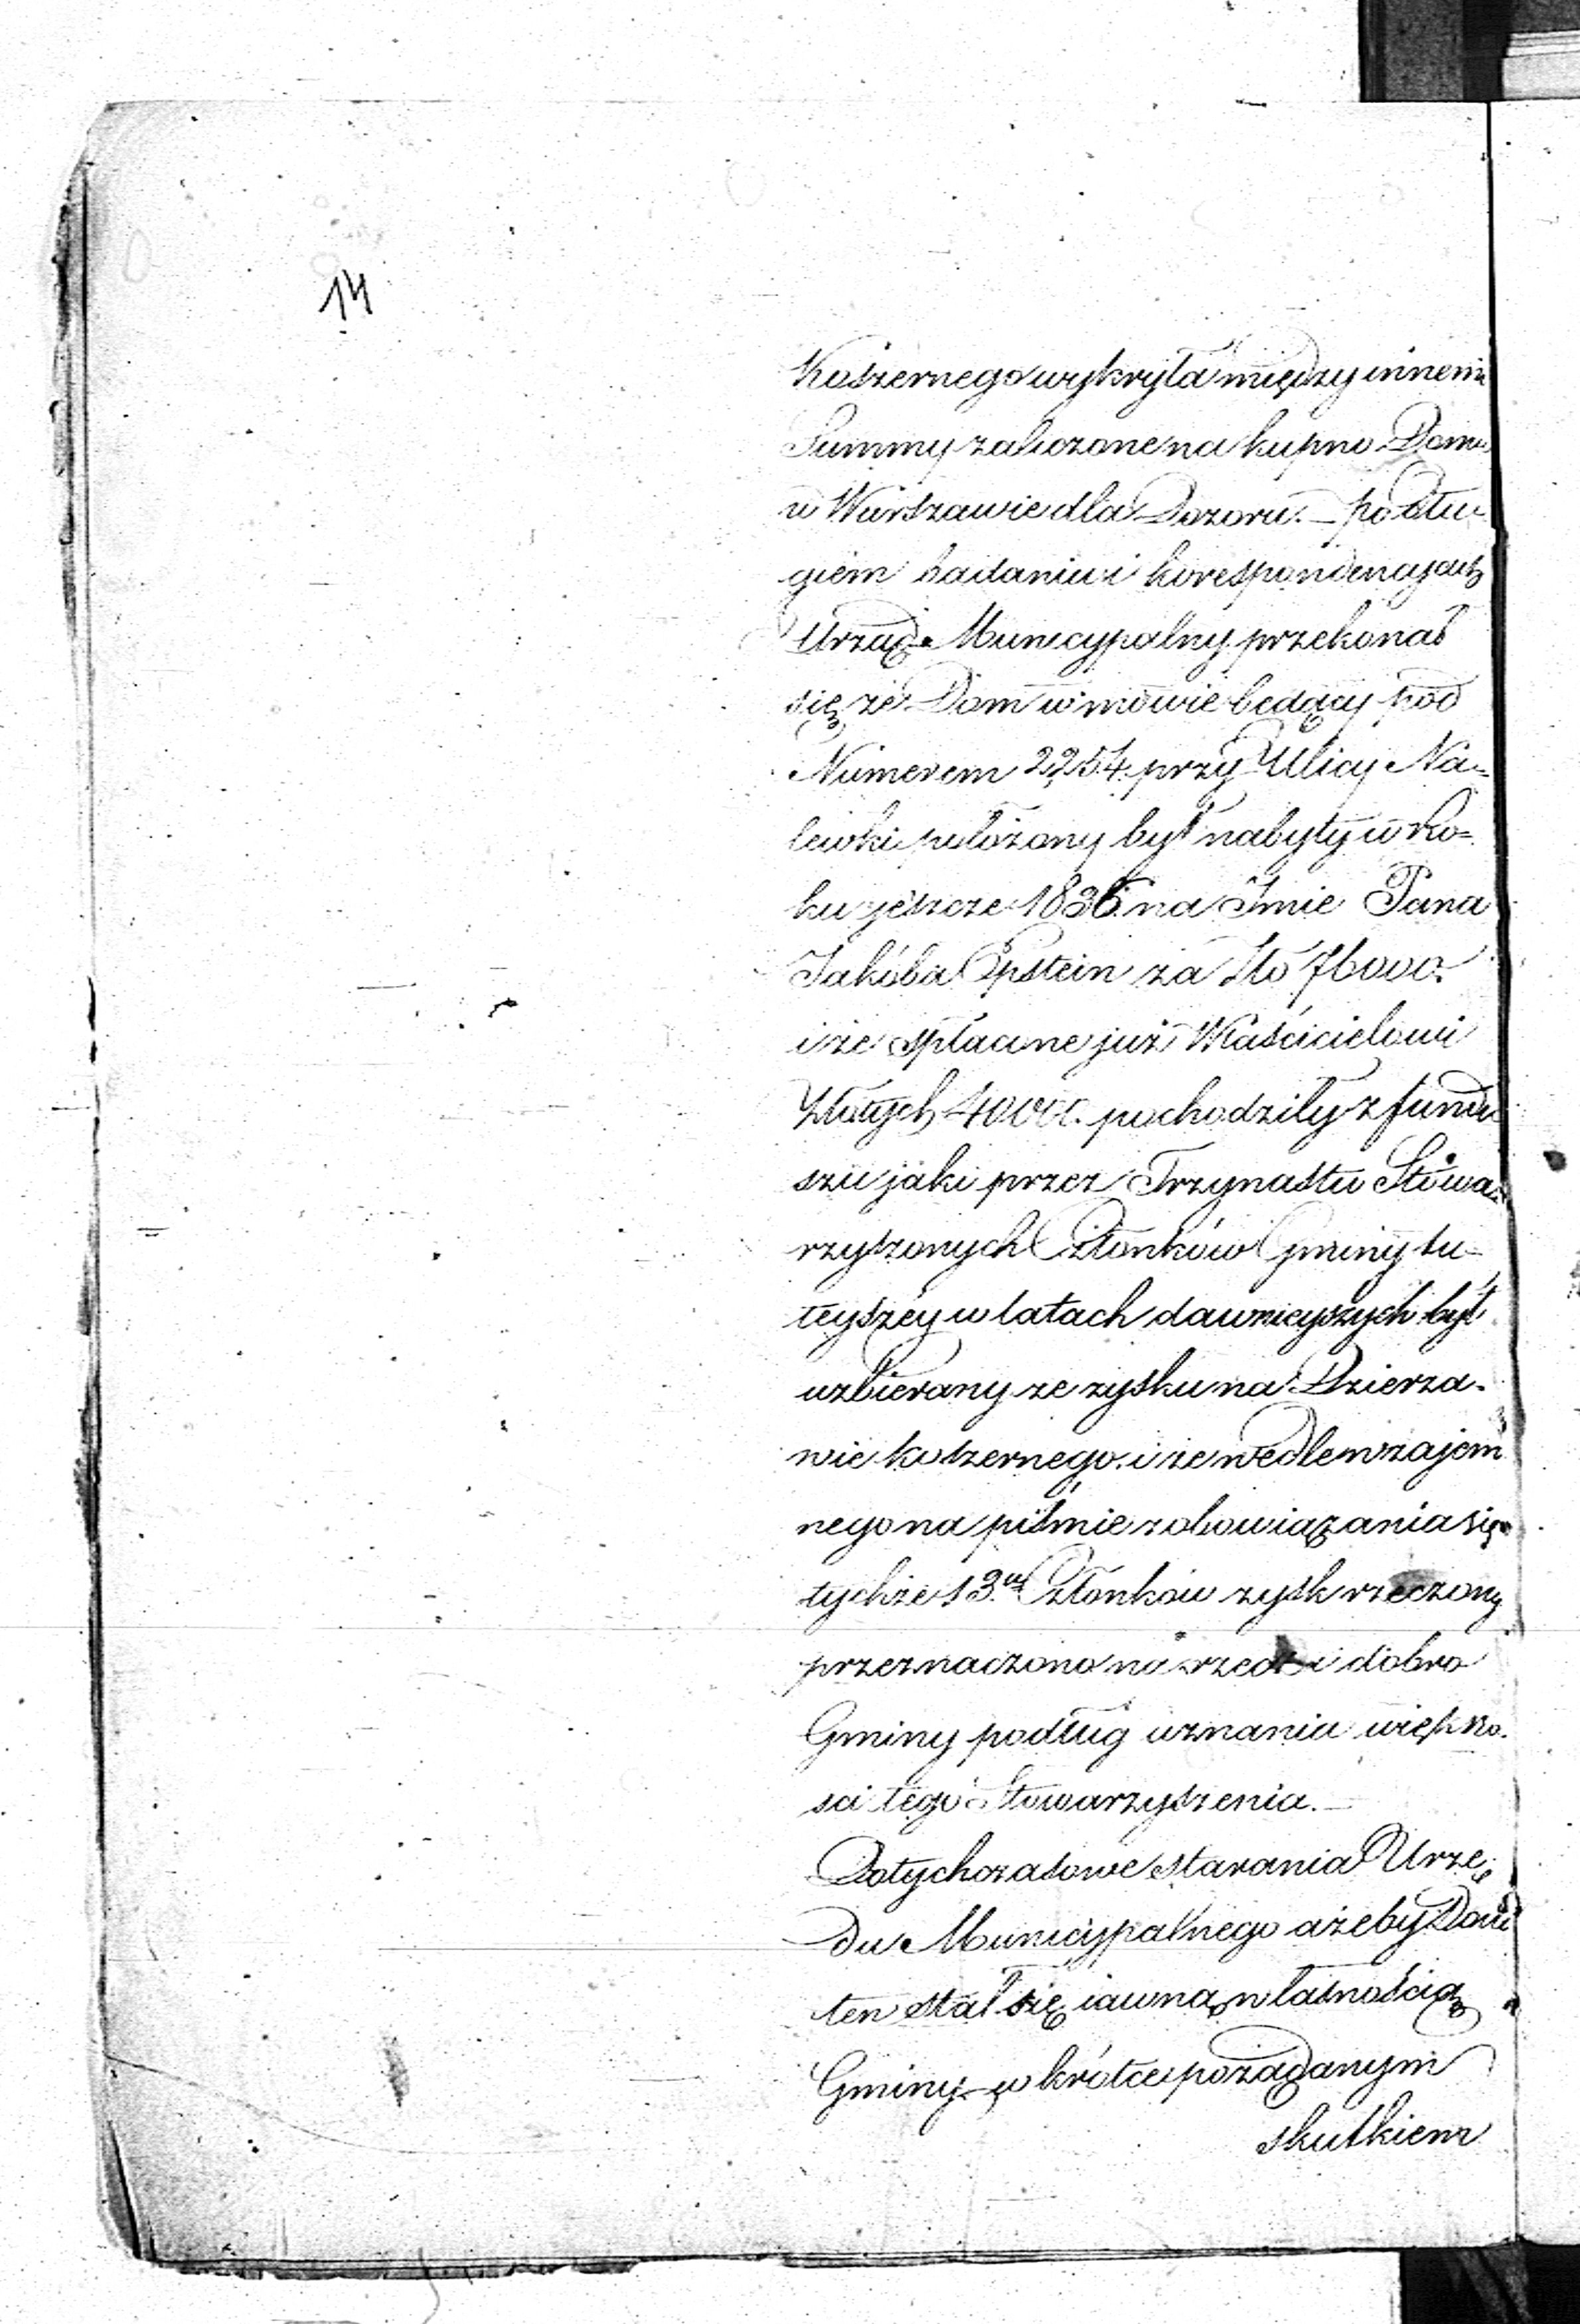 14
Koszernego wykryła między innemi
Summy zaliczone na kupno Domu
w Warszawie dla Dozoru. – po dłu-
giem badaniu i korespondencyach
Urząd Municypalny przekonał
się że Dom w mowie będący pod
Numerem 2254 przy Ulicy Na=
lewki położony był nabyty w ro=
ku jeszcze 1836 na Imie Pana
Jakóba Epstein za Złto 76000.
i że spłacone już Właścicielowi
Złotych 40000. pochodziły z fundu
szu jaki przez Trzynastu Stowa-
rzyszonych Członków Gminy tu-
teyszéy w latach dawnieyszych był
uzbierany ze zysku na Dzierza-
wie koszernego. i że wedle wzajem
nego na piśmie zobowiązania się
tychże 13.u Członków zysk rzeczony
przeznaczono na rzecz i dobro
Gminy podług uznania większo-
sci tego Stowarzyszenia. –
Dotychczasowe starania Urzę-
du Municypalnego ażeby Dom
ten stał się iawną własnością
Gminy w krótce pożądanym
skutkiem